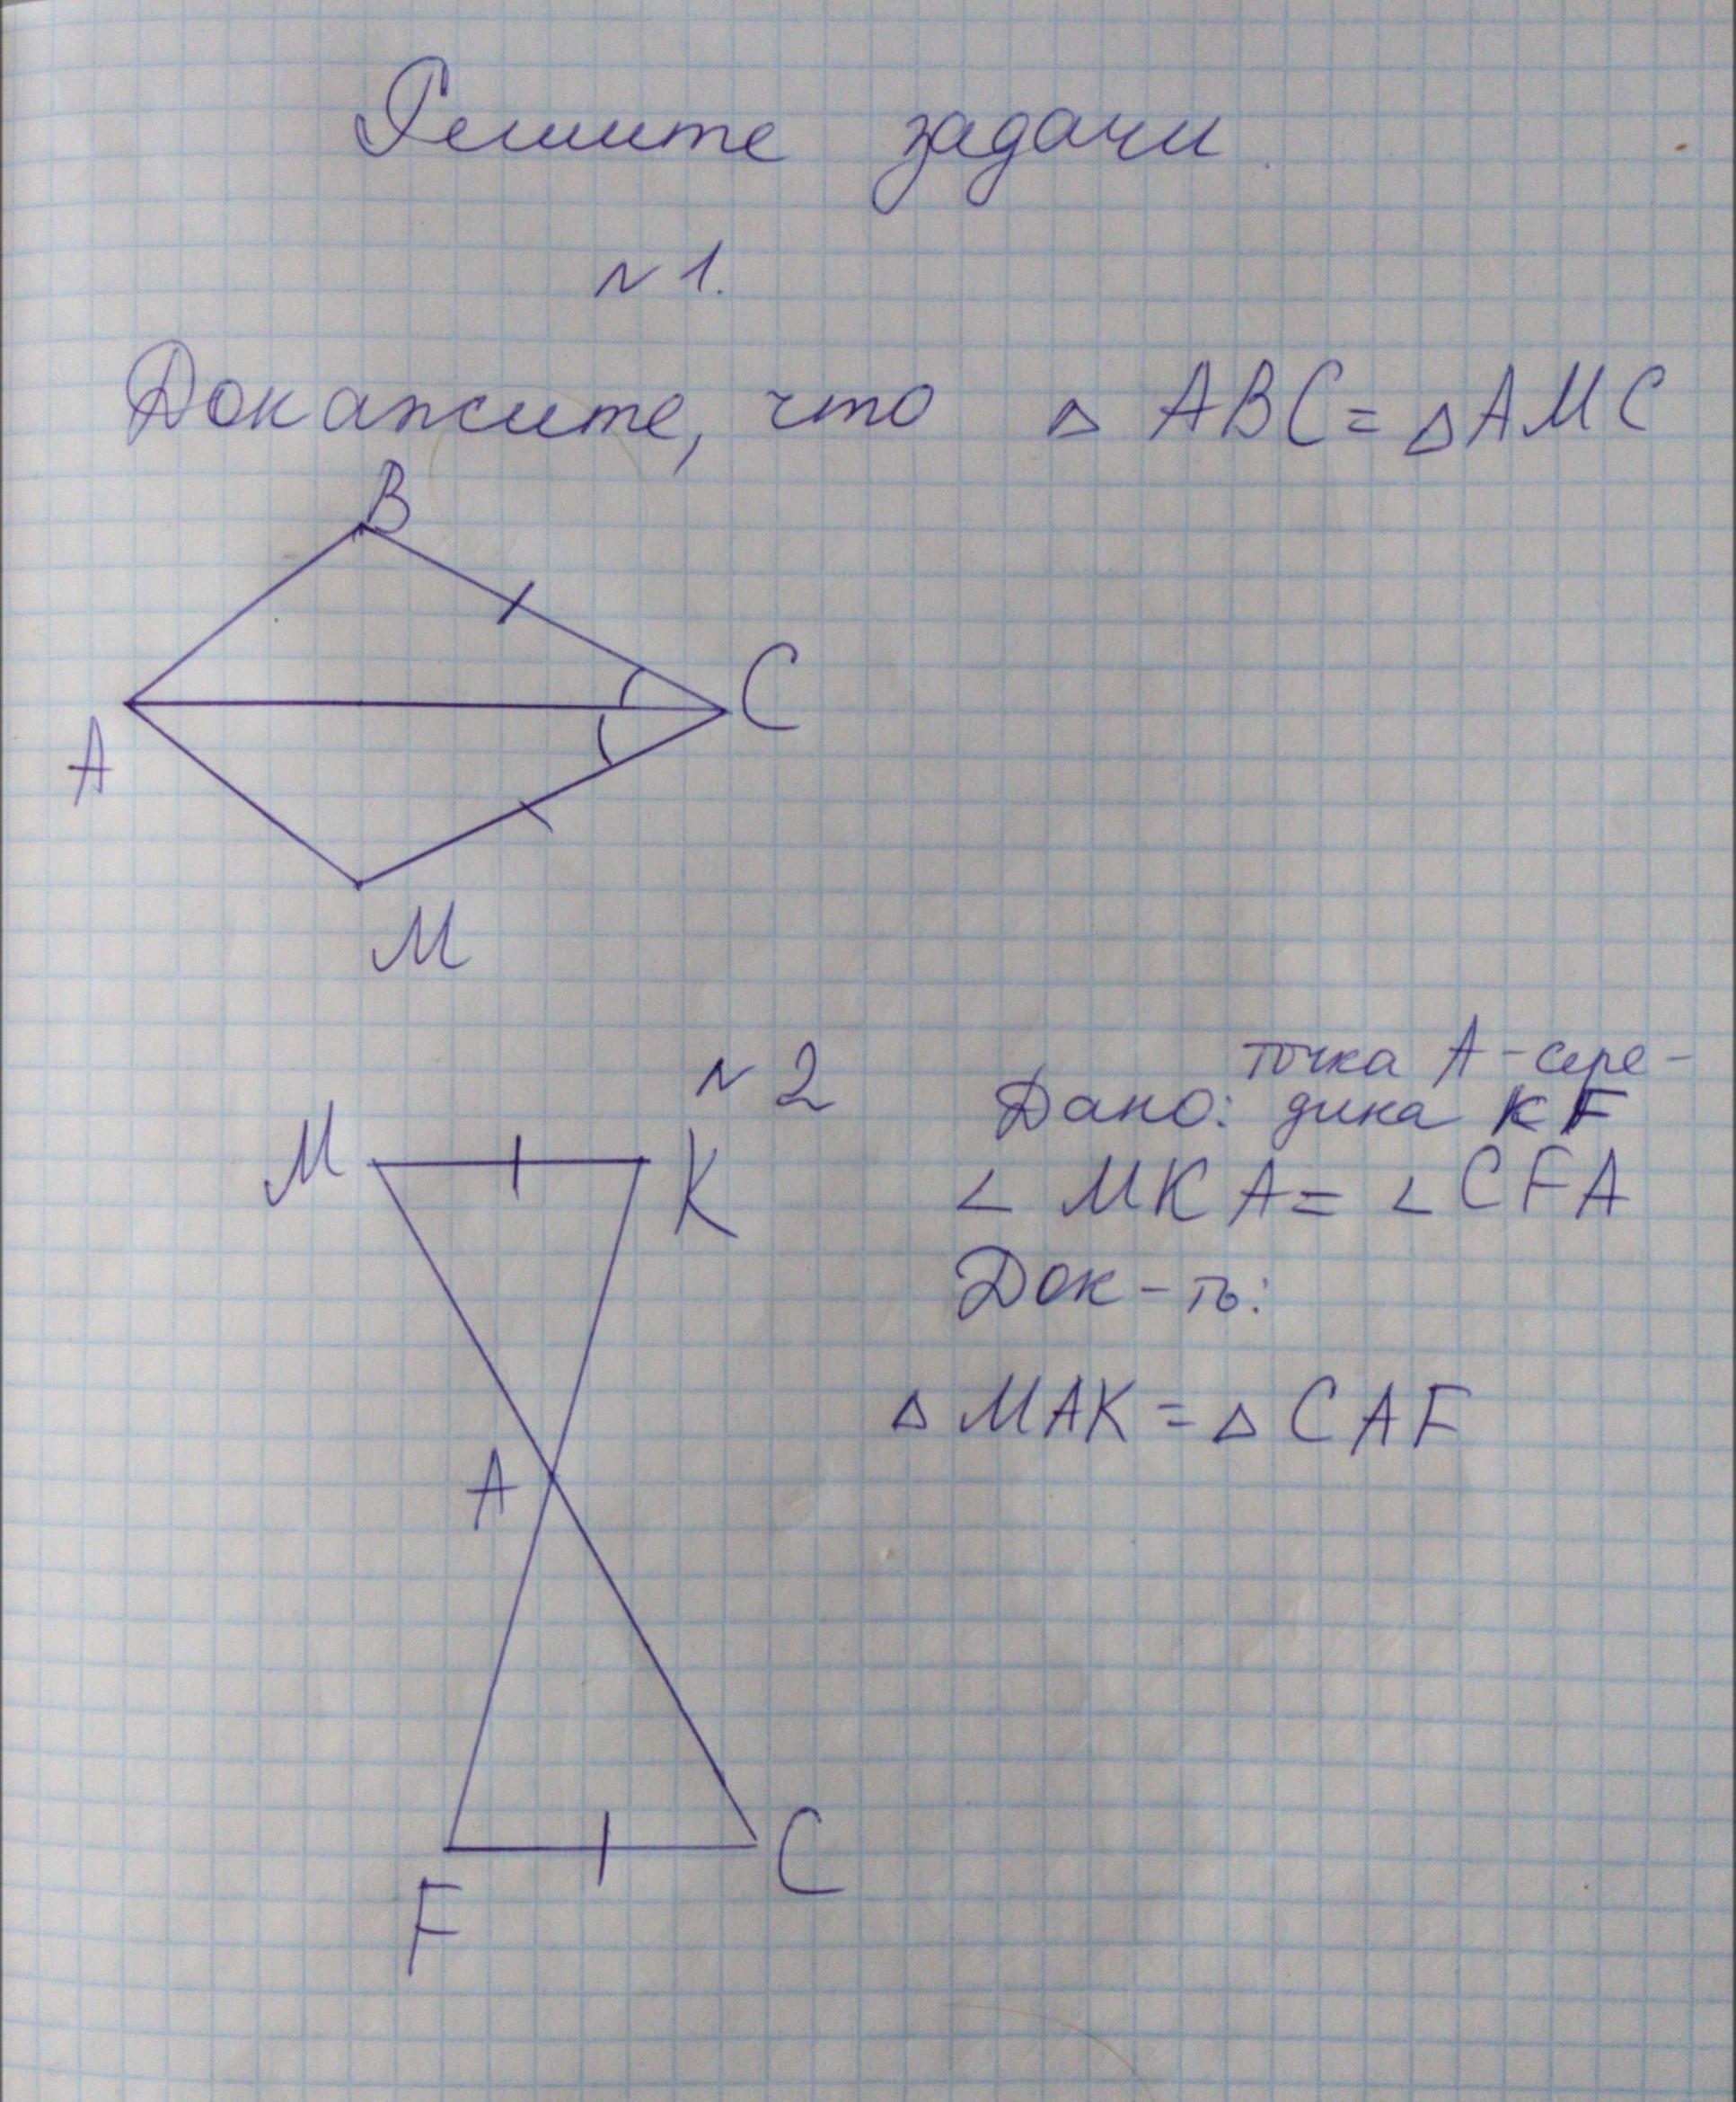 Решите задачи.
N 1.
Докажите, что △ ABC = △ AMC
B
C
A
M
N 2
точка A - сере-
Дано: дина KF
M
K
∠ MKA = ∠ CFA
Док-ть:
△ MAK = △ CAF
A
C
F